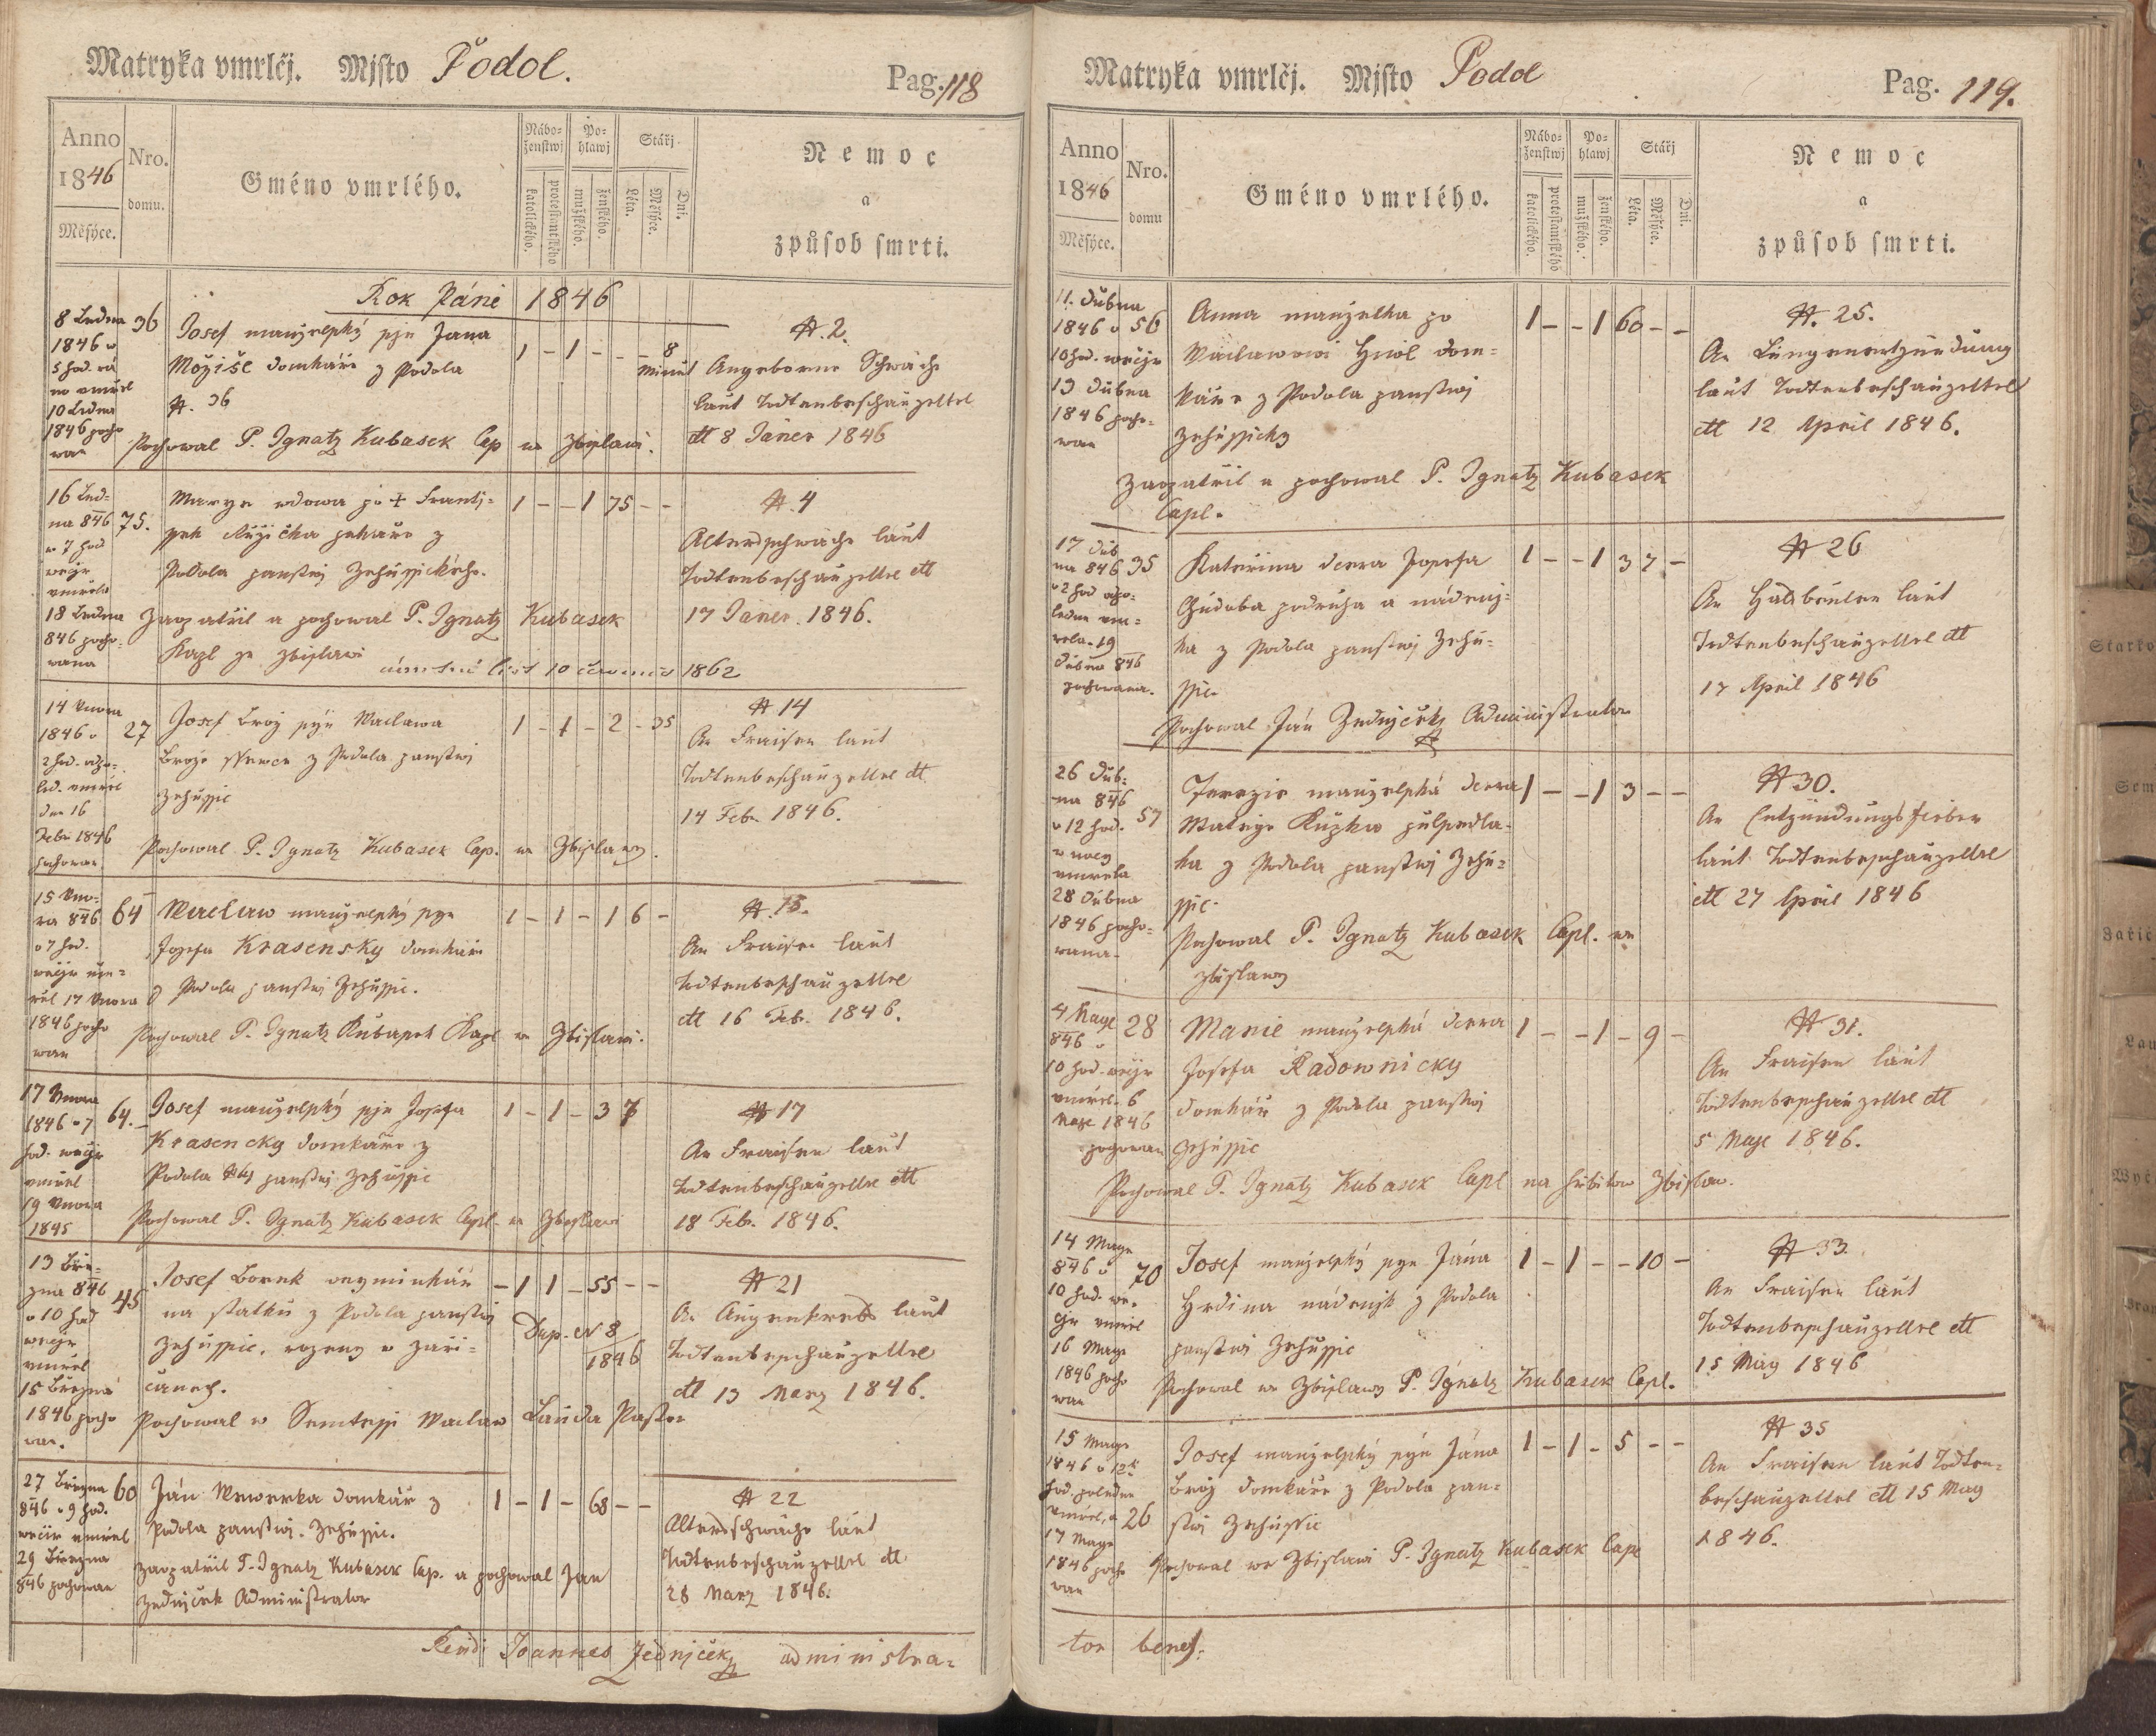 Matryka vmrlčj. Mjsto Podol.
Pag. 118
Anno 1846
Měsýce.
Nro. domu.
Gméno vmrlého.
Nábo=ženstwj
katolického.
protestantského
Po=hlawj
mužského.
ženského.
Stářj
Léta.
Měsýce.
Dni.
Nemoc
a
způsob smrti.
Rok Páně 1846
8 Ledna
1846 w
5 hod. rá
no umřel
10 Ledna
1846 pocho
wan
36
Josef manzelský syn Jana
Možiše domkáře z Podola
N. 36
Pochowal P. Ignatz Kubasek Cap we Zbislawi.
1 - 1 - - - 8 minut
N. 2.
Angeborne Schwäche
laut Todtenbeschauzettel
dt 8 Jäner 1846
16 Led=
na 846
w 7 hod
wečer
umřela
18 Ledna
846 pocho=
wana
75.
Marya wdowa po + Frantj=
ssek Růžička pekaře z
Podola panstwj Zehussického.
Zaopatřil a pochowal P. Ignatz Kubasek
Kapl ze Zbislawi
úmrtní list 10 1862
1 - - 1 75 - -
N. 4
Altersschwäche laut
Todtenbeschauzettel dt
17 Jäner 1846.
14 Února
1846 o
2 hod. odpo=
led. umřel
den 16
Febr 1846
pochowan
27
Josef Brož syn Waclawa
Brože z Podola panstwj
Zehussic
Pochowal P. Ignatz Kubasek Cap. we Zbislawy.
1 - 1 - 2 - 35
N 14
An Fraisen laut
Todtenbeschauzettel dt
14 Febr 1846.
15 Úno=
ra 846
o 7 hod.
wečer um=
řel 17 Února
1846 pocho
wan
64
Waclaw manzelský syn
Josefa Krasensky domkáře
z Podola panstwj Zehussic.
Pochowal P. Ignatz Kubasek Kapl we Zbislawi.
1 - 1 - 1 6 -
N. 15.
An Fraisen laut
Todtenbeschauzettel
dt 16 Feb. 1846.
17 Února
1846 o 7
hod. wečer
umřel
19 Února
1845
64.
Josef manzelský syn Josefa
Krasencky domkáře z
Podola panstwj Zehussic
Pochowal P. Ignatz Kubasek Capl. we Zbislawi
1 - 1 - 3 7
N 17
An Fraisen laut
Todtenbeschauzettel dt
18 Feb. 1846.
13 Bře=
zna 846
o 10 hod
wečer
umřel
15 Března
1846 pocho
wan.
45
Josef Borek weyminkář
na statku z Podola panstwj
Zehussic, rozeny w Zaři=
čanech.
Pochowal w Semtessi Waclaw Lauda Pastor
- 1 1 - 55 - -
Dup. N 8/1846
N 21
An Augenkrebs laut
Todtenbeschauzettel
dt 13 März 1846.
27 Března
846 o 9 hod.
wečer umřel
29 Března
846 pochowan
60
Ján Wewerka domkář z
Podola panstwj. Zehussic.
Zaopatřil P. Ignatz Kubasek Cap. a pochowal Jan
Zednjček Administrator
1 - 1 - 68 - -
N 22
Altersschwäche laut
Todtenbeschauzettel dt
28 März 1846.
Joannes Zednjček administra=
Matryka vmrlčj. Mjsto Podol
Pag. 119.
Anno 1846
Měsýce.
Nro. domu
Gméno vmrlého.
Nábo=ženstwj
katolického.
protestantského
Po=hlawj
mužského.
ženského.
Stářj
Léta.
Měsýce.
Dni.
Nemoc
a
způsob smrti.
11. Dubna
1846 o
10 hod. wečer
13 Dubna
1846 pocho=
wan
56
Anna manzelka po
Waclawowi Hniol dom=
káře z Podola panstwj
Zehussicky
Zaopatřil a pochowal P. Ignatz Kubasek
Capl.
1 - - 1 60 - -
N. 25.
An Lungenentzündung
laut Todtenbeschauzettel
dt 12 April 1846.
17 Dub
na 846
o 2 hod odpo=
ledne um=
řela. 19
Dubna 846
pochowana.
35
Kateřina dcera Josefa
Chudoba podruha a nádenj=
ka z Podola panstwj Zehu=
ssic.
Pochowal Ján Zednjček Administrator
1 - - 1 3 7 -
N 26
An Halsbräune laut
Todtenbeschauzettel dt
17 April 1846
26 Dub=
na 846
o 12 hod.
w nocy
umřela
28 Dubna
1846 pocho=
wana.
57
Terezie manzelská dcera
Mateje Růzka pulsedla=
ka z Podola panstwj Zehu=
ssic.
Pochowal P. Ignatz Kubasek Capl. we
Zbislawy
1 - - 1 3 - -
N 30.
An Entzündungsfieber
laut Todtenbeschauzettel
dt 27 April 1846
4 Mage
846 o
10 hod. wečer
umřel. 6
Mage 1846
pochowan
28
Marie manzelská dcera
Josefa Radownicky
domkáře z Podola panstwj
Zehussic
Pochowal P. Ignatz Kubasek Capl na hrbitow Zbislaw.
1 - - 1 - 9 -
N 31.
An Fraisen laut
Todtenbeschauzettel dt
5 Mage 1846.
14 Mage
846 o
10 hod. we=
čer umřel
16 Mage
1846 pocho
wan
70
Josef manzelský syn Jána
Hrdina nádenjk z Podola
panstwj Zehussic
Pochowal we Zbislawy P. Ignatz Kubasek Capl.
1 - 1 - - 10 -
N 33.
An Fraisen laut
Todtenbeschauzettel dt
15 May 1846
15 Mage
1846 o 12
hod. poledne
umřel, a
17 Mage
1846 pocho
wan
26
Josef manzelský syn Jána
Brož domkáře z Podola pan=
stwj Zehussic
Pochowal we Zbislawi P. Ignatz Kubasek Capl
1 - 1 - 5 - -
N 35
An Fraisen laut Todten=
beschauzettel dt 15 May
1846.
tor benef.